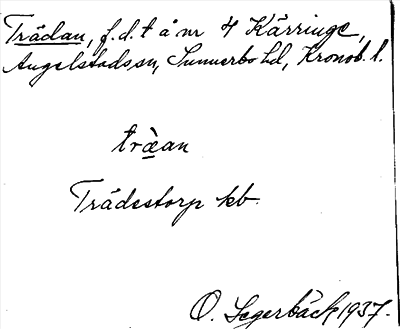 Trädan, f.d. t å nr 4 Kärringe,
Angelstads sn, Sunnerbo hd, Kronob. l.
træ̀an
Trädestorp kb.
O. Segerbäck 1937.